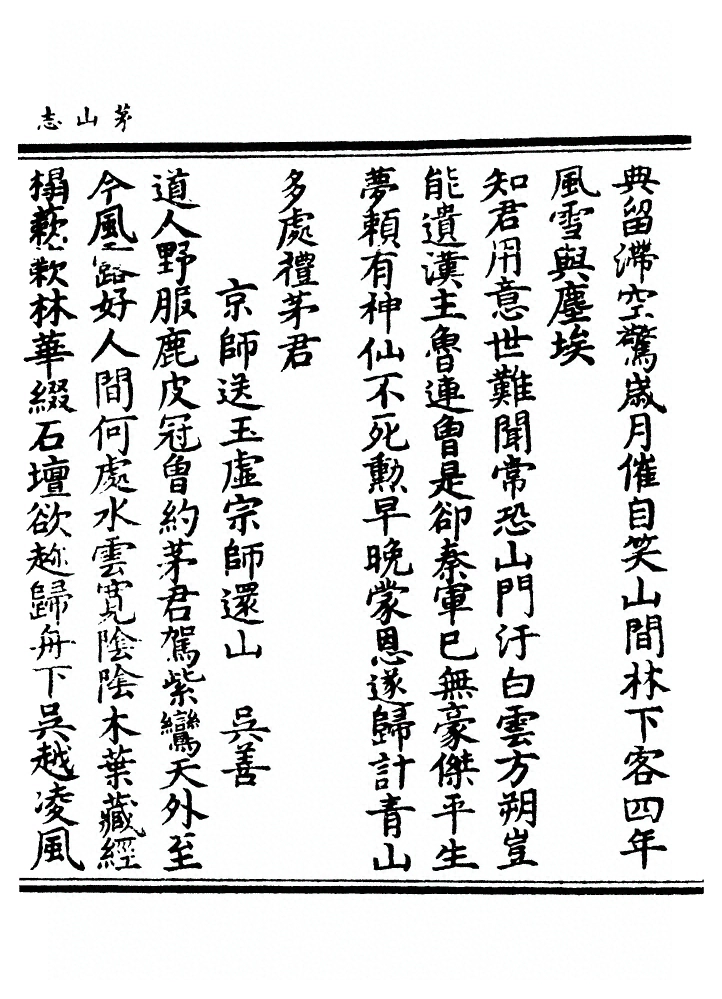 茅山志
典留滯空驚歲月催自笑山間林下客四年
風雪與塵埃
知君用意世難聞常恐山門汙白雲方朔豈
能遺漢主魯連曾是卻秦軍已無豪傑平生
夢頼有神仙不死勲早晚蒙恩遂歸計青山
多處禮茅君
京師送玉虛宗師還山 吳善
道人野服鹿皮冠曾約茅君駕紫鸞天外至
今風露好人間何處水雲寬陰陰木葉藏經
榻蔌蔌林華綴石壇欲趂歸舟下吳越凌風